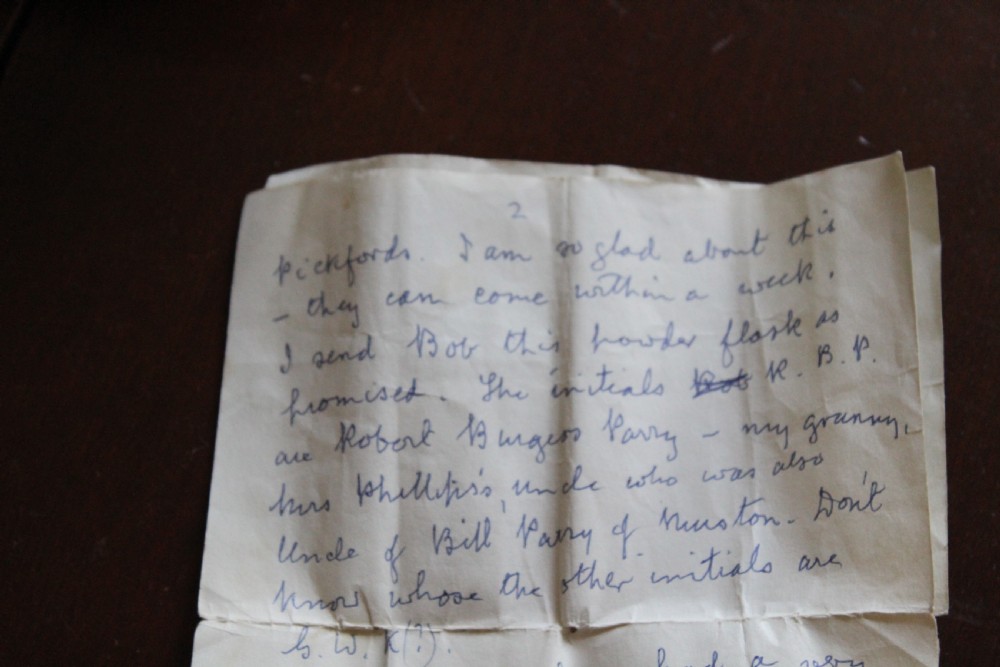 2
Pickfords. I am so glad about this
- they can come within a week.
I send Bob this powder flask as
promised. The initials R. B. P.
are Robert Burgess Parry - my granny,
Mrs Phillips's, uncle who was also
Uncle of Bill Parry of Nuston. Don't
know whose the other initials are
G. W. K(?).
had a very